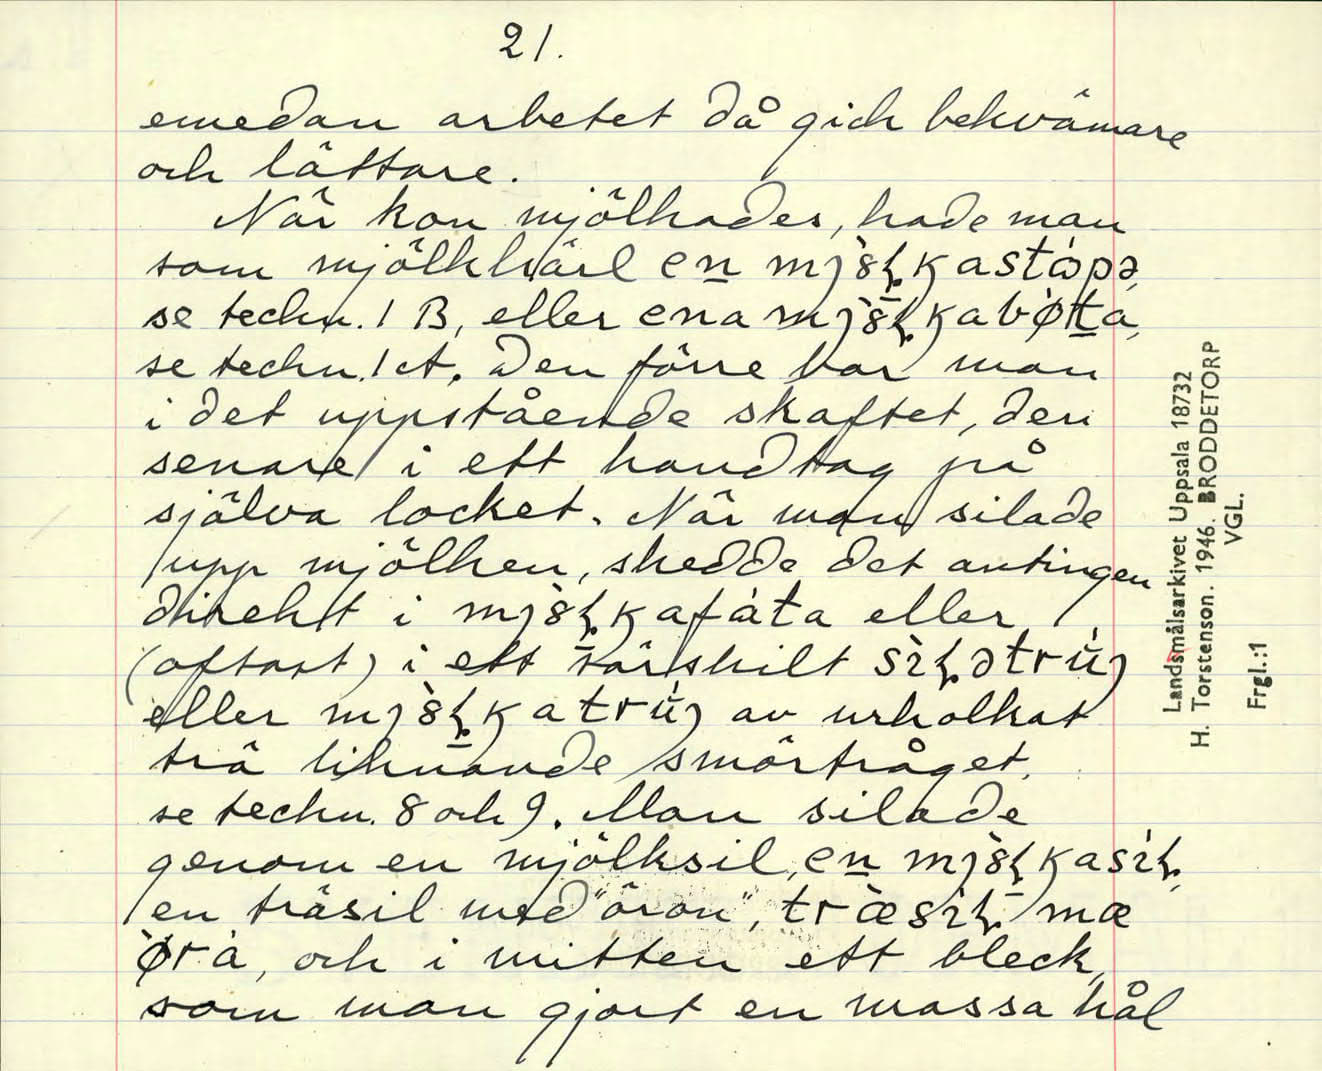 21.
emedan arbetet då gick bekvämare
och lättare.
När kon mjölkades, hade man
som mjölkkärl en
se teckn. 1 B, eller ena
se teckn. 1 A. Den förre bar man
i det uppstående skaftet, den
senare i ett handtag på
själva locket. När man silade
upp mjölken, skedde det antingen
direkt i eller
(oftast) i ett särskilt
eller av urholkat
trä liknande smörtråget,
se teckn. 8 och 9. Man silade
genom en mjölksil, en
en träsil med "öron", mæ
ørà, och i mitten ett bleck,
som man gjort en massa hål
Landsmålsarkivet Uppsala 18732
H. Torstenson. 1946. BRODDETORP
VGL.
Frgl.:1